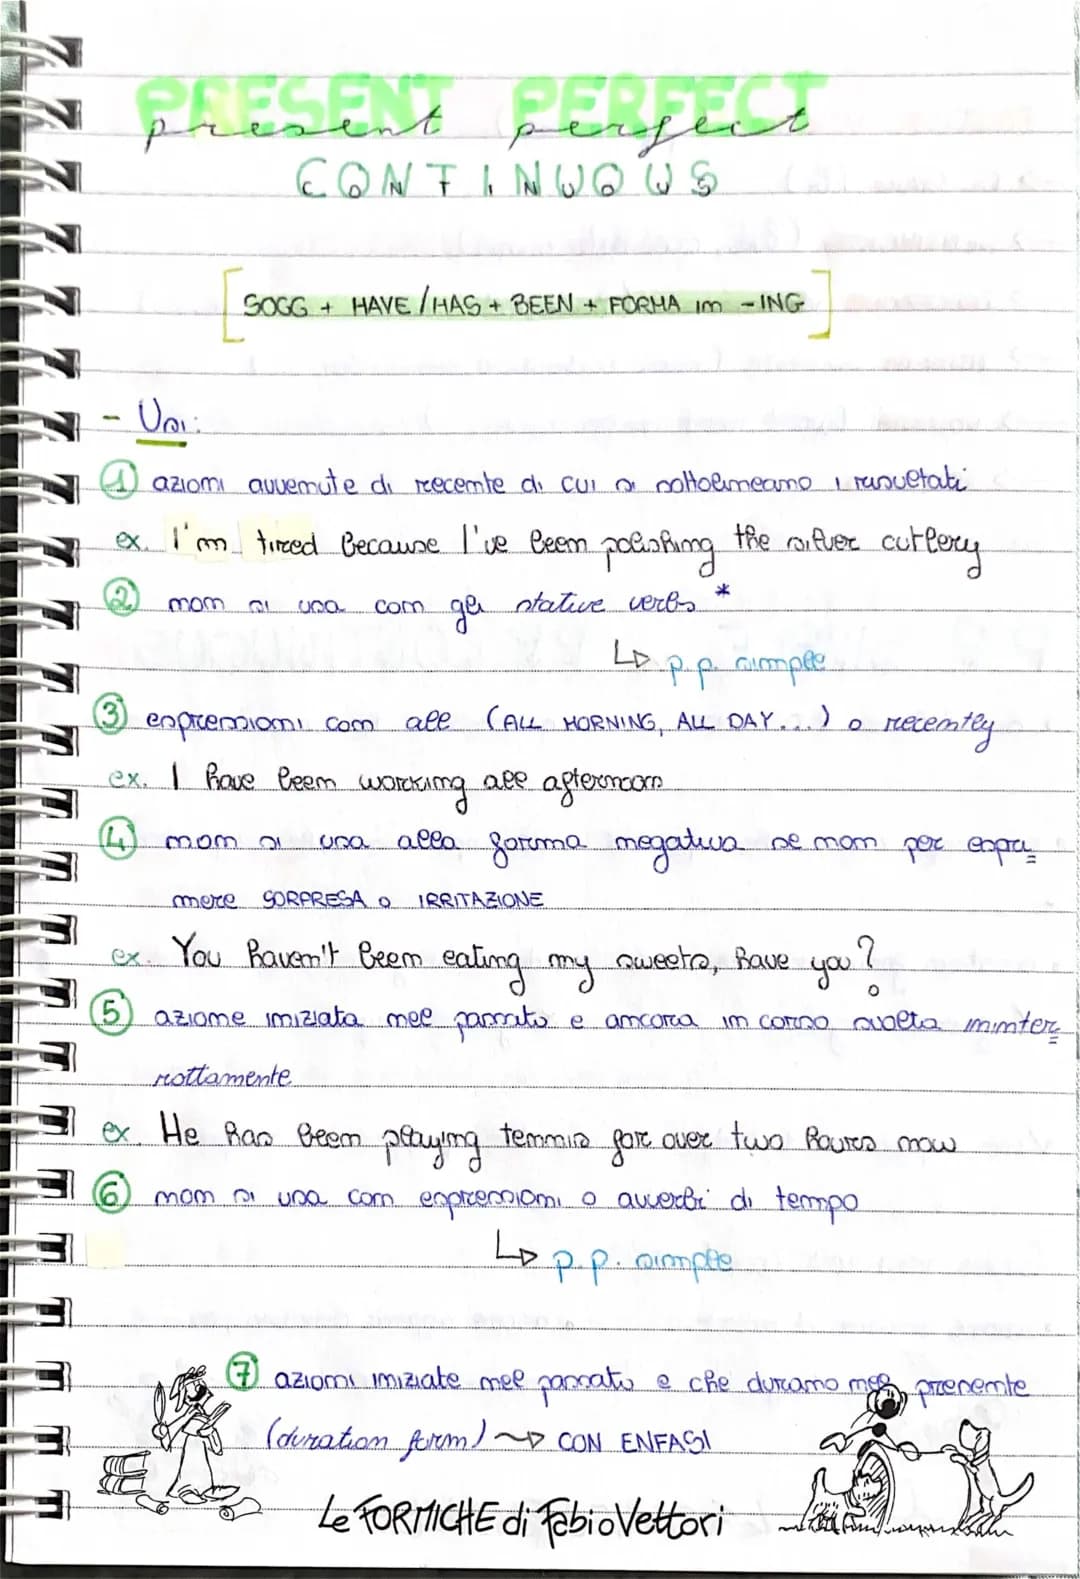 PRESENT PERFECT
present perfect
CONTINUOUS
SOGG + HAVE/HAS + BEEN + FORMA in -ING
- Usi:
① azioni avvenute di recente di cui si sottolineano i risultati
ex. I'm tired because I've been polishing the silver cutlery
② non si usa con gli stative verbs *
↳ p.p. simple
③ espressioni con all (ALL MORNING, ALL DAY...) o recently
ex. I have been working all afternoon
④ non si usa alla forma negativa se non per espri=
mere SORPRESA o IRRITAZIONE
ex. You haven't been eating my sweets, have you?
⑤ azione iniziata nel passato e ancora in corso svolta ininter=
rottamente
ex. He has been playing tennis for over two hours now
⑥ non si usa con espressioni o avverbi di tempo
↳ p.p. simple
⑦ azioni iniziate nel passato e che durano nel presente
(duration form) ~> CON ENFASI
Le FORMICHE di Fabio Vettori